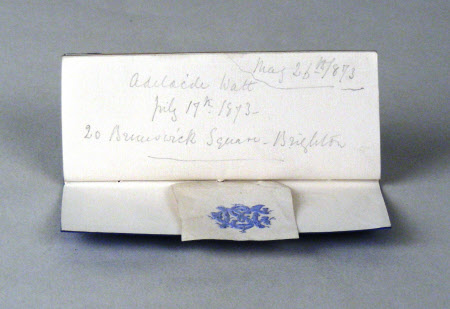 May 26th/873
Adelaide Watt
July 17th 1873-
20 Brunswick Square - Brighton